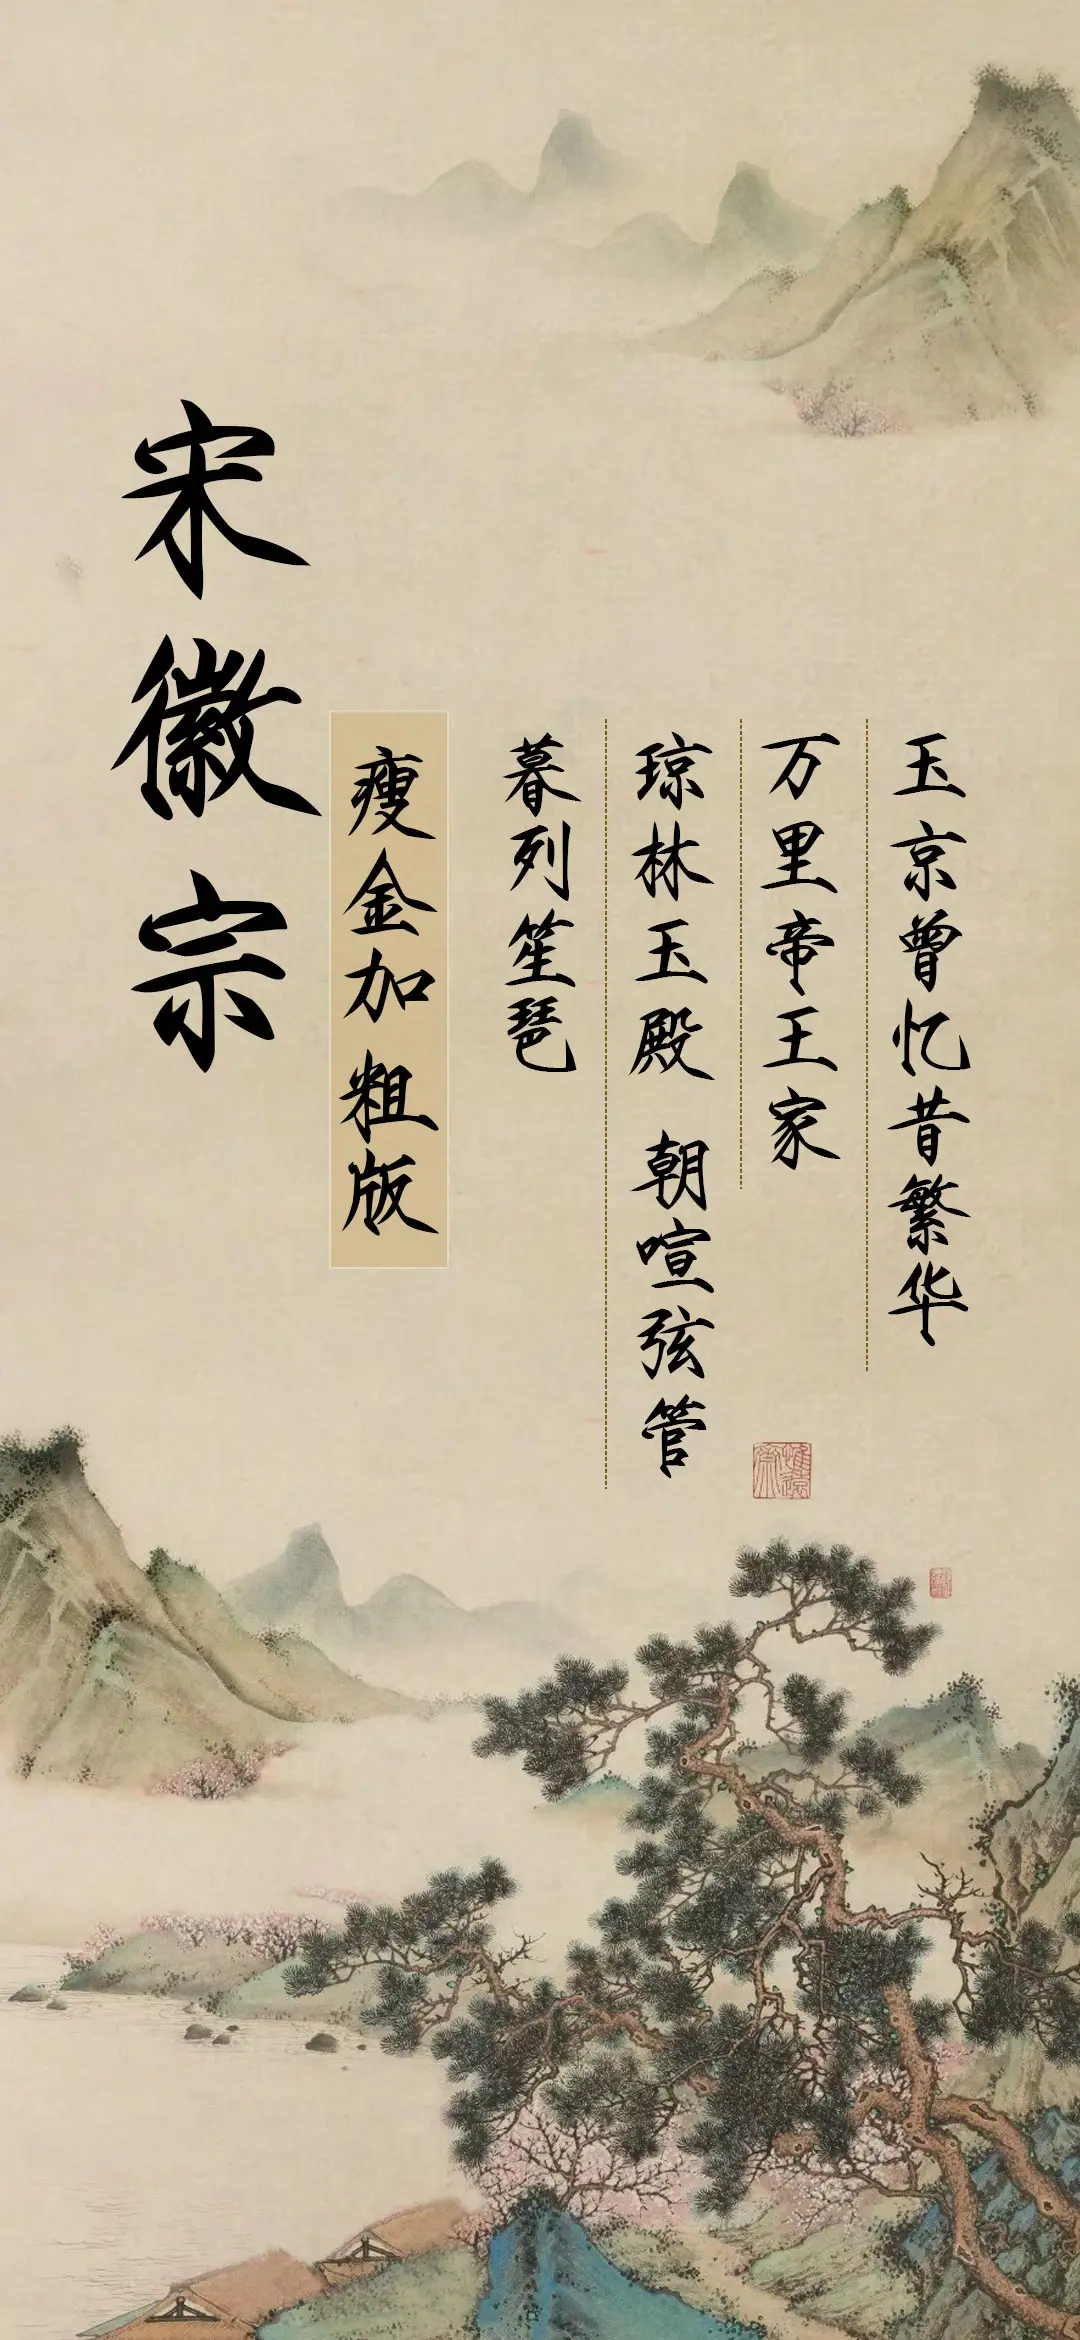 宋徽宗
瘦金加粗版
玉京曾忆昔繁华
万里帝王家
琼林玉殿 朝喧弦管
暮列笙琶